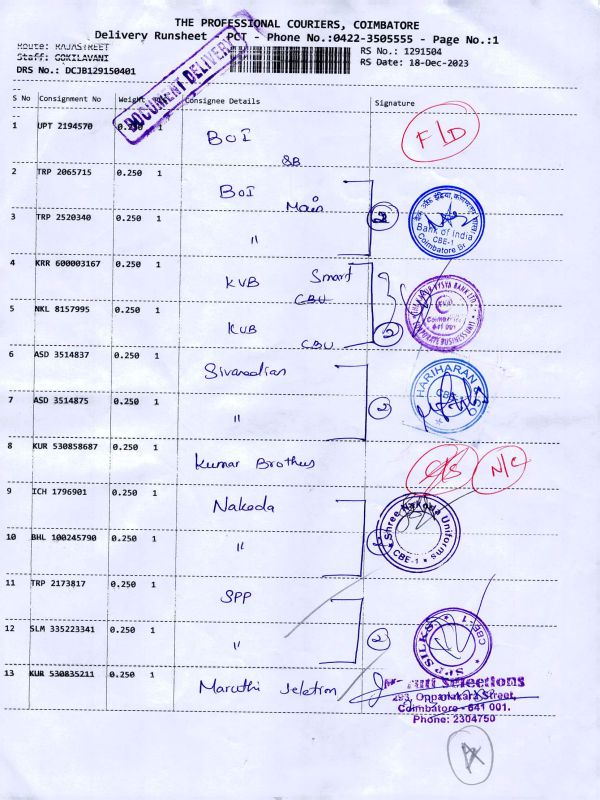 THE PROFESSIONAL COURIERS, COIMBATORE
Delivery Runsheet PCT - Phone No.:0422-3505555 - Page No.:1
Route: RAJASTREET
Staff: GOKILAVANI
DRS No.: DCJB129150401
RS No.: 1291504
RS Date: 18-Dec-2023
DOCUMENT DELIVERY
S No Consignment No Weight Consignee Details Signature
1 UPT 2194570 0.250 1 BOI F/D
SB
2 TRP 2065715 0.250 1 BOI Main
3 TRP 2520340 0.250 1 "
Bank of India
CBE-1
Coimbatore Br
4 KRR 600003167 0.250 1 KVB Smart CBU
5 NKL 8157995 0.250 1 KVB CBU 2
VYSYA BANK LTD
KVB
641 001
CORPORATE BUSINESS UNIT
6 ASD 3514837 0.250 1
7 ASD 3514875 0.250 1 " 2
HARIHARAN & CO
CBE-1
8 KUR 530858687 0.250 1 Kumar Brothers N/C
9 ICH 1796901 0.250 1 Nakoda
10 BHL 100245790 0.250 1 "
Shree Nakoda Uniforms
CBE-1
11 TRP 2173817 0.250 1 SPP
12 SLM 335223341 0.250 1 " 2
SPP SILKS
CBE-1
13 KUR 530835211 0.250 1 Maruthi Seletion
Selections
293, Oppanakara Street,
Coimbatore - 641 001.
Phone: 2304750